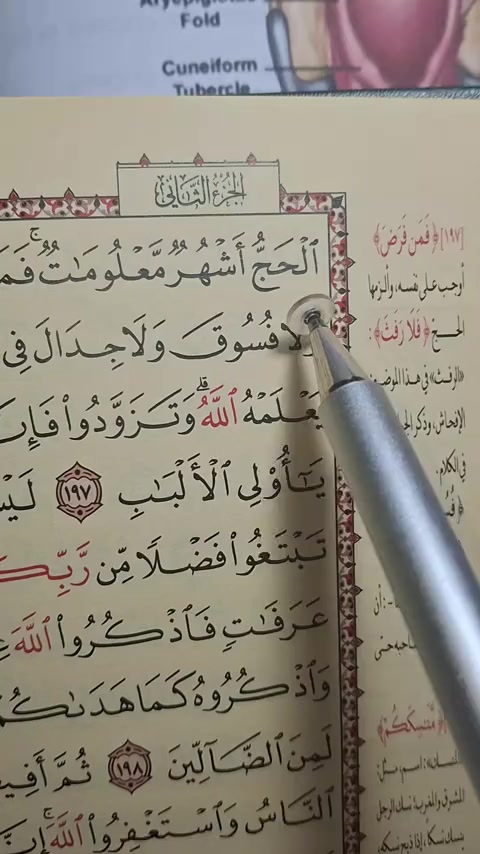 Fold
Cuneiform
Tubercle
الجزء الثاني
ٱلْحَجُّ أَشْهُرٌ مَّعْلُومَٰتٌ ۚ فَمَ
وَلَا فُسُوقَ وَلَا جِدَالَ فِي
يَعْلَمْهُ ٱللَّهُ ۗ وَتَزَوَّدُوا۟ فَإِنَّ
يَـٰٓأُو۟لِى ٱلْأَلْبَـٰبِ ١٩٧ لَيْسَ
تَبْتَغُوا۟ فَضْلًا مِّن رَّبِّكُ
عَرَفَـٰتٍ فَٱذْكُرُوا۟ ٱللَّهَ
وَٱذْكُرُوهُ كَمَا هَدَىٰكُمْ
لَمِنَ ٱلضَّآلِّينَ ١٩٨ ثُمَّ أَفِي
ٱلنَّاسُ وَٱسْتَغْفِرُوا۟ ٱللَّهَ ۚ إِنَّ
[١٩٧] ﴿فَمَن فَرَضَ﴾
أوجب على نفسه، وألزمها
الحج ﴿فَلَا رَفَثَ﴾:
«الرفث» في هذا الموضع
الإفحاش، وذكر
في الكلام.
مَّنَـٰسِكَكُمْ﴾
اسم، مثل:
المشرق والمغرب؛ نسك الرجل
ينسك نسكا، إذا ذبح نسكه،